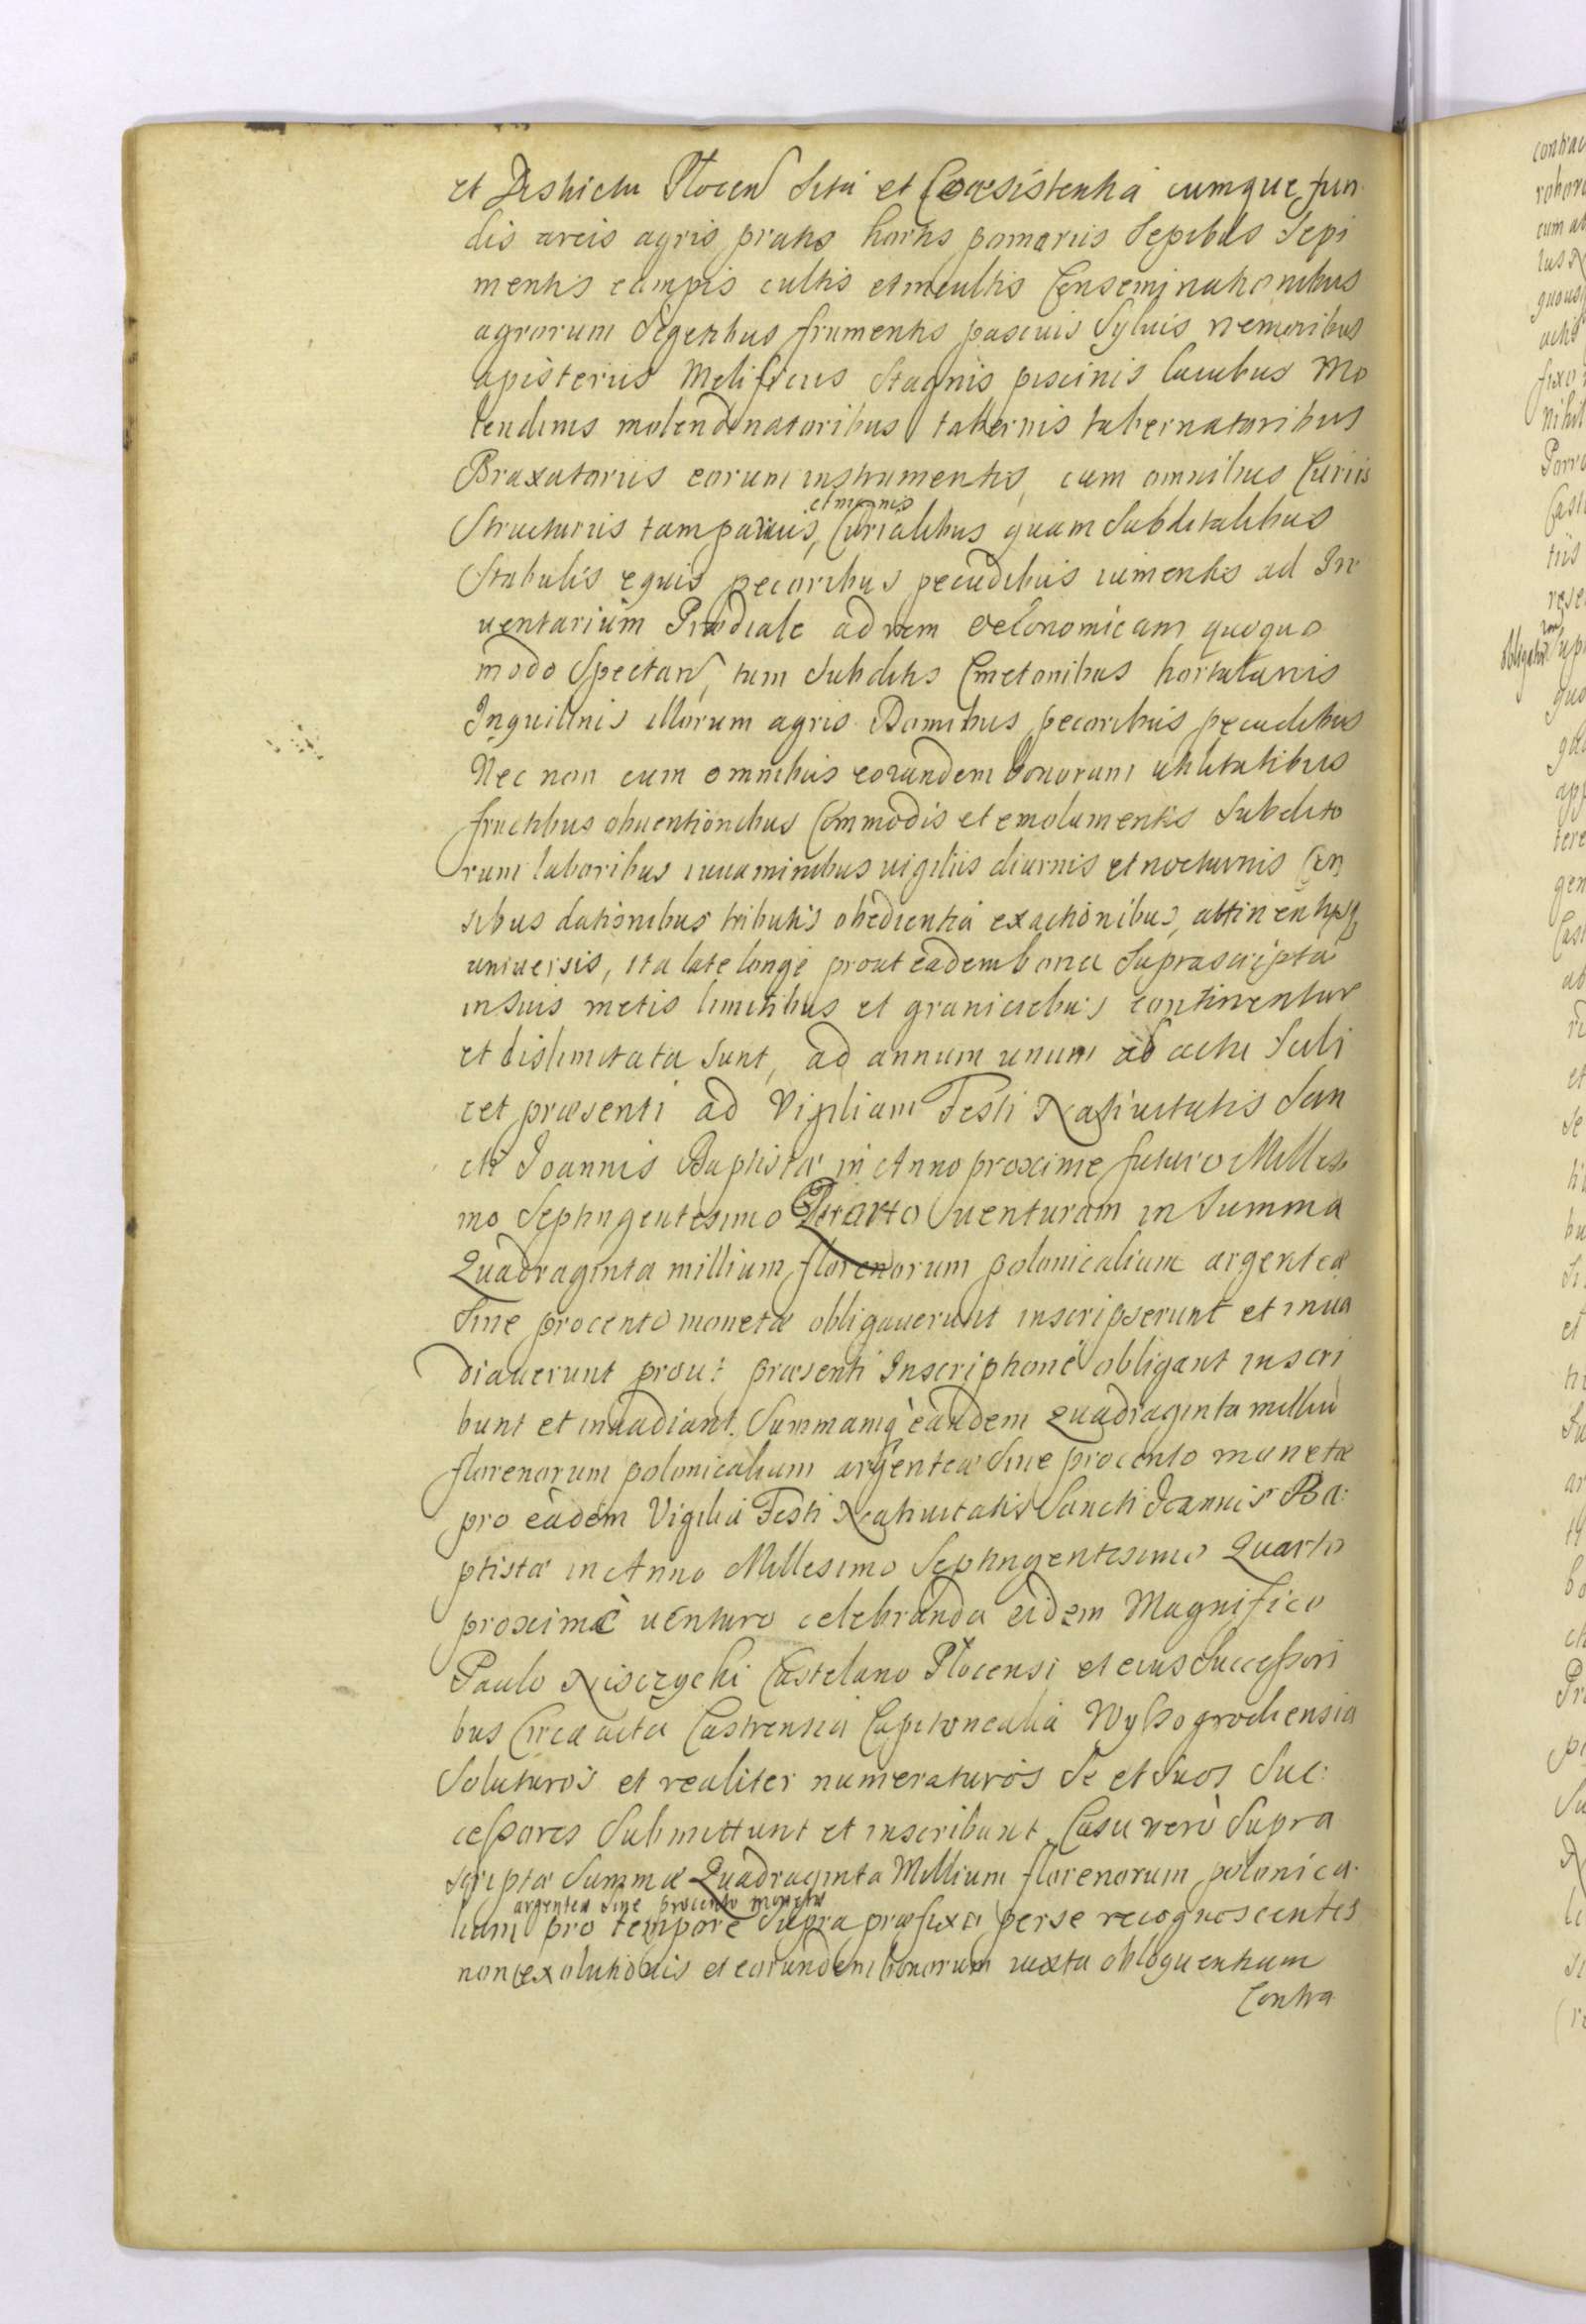 et Districtu Plocen Sita et Consistentia cumque fun
dis areis agris pratis hortis pomariis Sepibus Sepi
mentis campis cultis et incultis Conseminationibus
agrorum Segetibus frumentis pascuis Syluis nemoribus
apisteriis Melificiis Stagnis piscinis lacubus Mo
lendinis molendinatoribus tabernis tabernatoribus
Braxatoriis eorum instrumentis, cum omnibus Curiis
et magnis
Structuriis tam paruis, Curialibus quam Subditalibus
Stabulis equis pecoribus pecudibus iumentis ad In
uentarium Prædiale ad rem oeconomicam quoquo
modo Spectan, tum Subditis Cmetonibus hortulanis
Inquilinis illorum agris Domibus pecoribus pecudibus
Nec non cum omnibus eorundem bonorum utilitatibus
fructibus obuentionibus Commodis et emolumentis Subdito
rum laboribus iuuaminibus uigiliis diurnis et nocturnis Cen
sibus dationibus tributis obedientia exactionibus, attinentysq
uniuersis, ita late longe prout eadem bona Suprascripta
in Suis metis limitibus et graniciebus continentur
et dislimitata Sunt, ad annum unum ab actu Scili
cet præsenti ad Vigiliam Festi Natiuitatis San
cti Joannis Baptistæ in Anno proxime futuro Millesi
mo Septingentesimo Quarto uenturam in Summa
Quadraginta millium florenorum polonicalium argenteæ
Sine procento monetæ obligauerunt inscripserunt et inua
diauerunt prout præsenti Inscriptione obligant inscri
bunt et inuadiant. Summamq eandem quadraginta milliu
florenorum polonicalium argenteæ Sine procento monetæ
pro eadem Vigilia Festi Natiuitatis Sancti Joannis Ba:
ptistæ in Anno Millesimo Septingentesimo Quarto
proxime uenturo celebranda eidem Magnifico
Paulo Nisczycki Castelano Plocensi et eius Successori
bus Circa acta Castrensia Capitonealia Wyssogrodiensia
Soluturos et realiter numeraturos Se et Suos Suc:
cessores Submittunt et inscribunt. Casu verò Supra
scriptæ Summæ Quadraginta Millium florenorum polonica
argentea Sine procento monetæ
lium pro tempore Supra præfixo per se recognoscentes
non exolutionis et eorundem bonorum iuxta obloquentiam
Contra